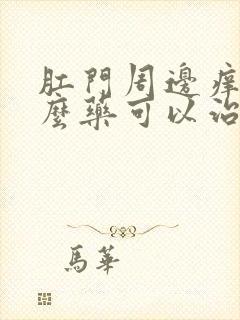 肛門周邊癢
麼藥可以治
馬華